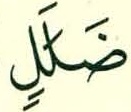 ضَلَٰلٍ